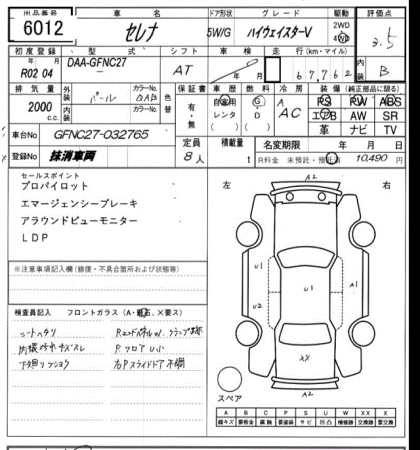 出品番号 車名 ドア形状 グレード 駆動 評価点
6012 セレナ 5W/G ハイウェイスターV 2WD 4WD 3.5
初度登録 型式 シフト 車検 走行(km・マイル) 内装
年 月 DAA-GFNC27 AT 年 月 67,762 B
R02 04 ー
排気量 外装 カラーNo. 色替 保証書 車歴 燃料 冷房 装備(純正部品に限る)
2000 c.c. パール QAB 有・無 自家用 G AC PS PW ABS
内装 カラーNo. レンタ D エアB AW SR
革 ナビ TV
車台No GFNC27-032765 定員 積載量 名変期限 年 月 日
登録No 抹消車両 8人 t R料金 未預託・預託済 10,490円
セールスポイント
プロパイロット
エマージェンシーブレーキ
アラウンドビューモニター
LDP
※注意事項記入欄(修復・不具合箇所および状態等)
検査員記入 フロントガラス(A・飛石、×要ス)
シートヘタリ
内張キズスレ
Rフロア
右Pスライドドア不調
左 右
A2
U1
U2
U1
A1
XX
A2
スペア
A B C P S U W X XX
線キズ 要板金 腐蝕 要塗装 サビ 凹凸 補修跡 要交換 交換済